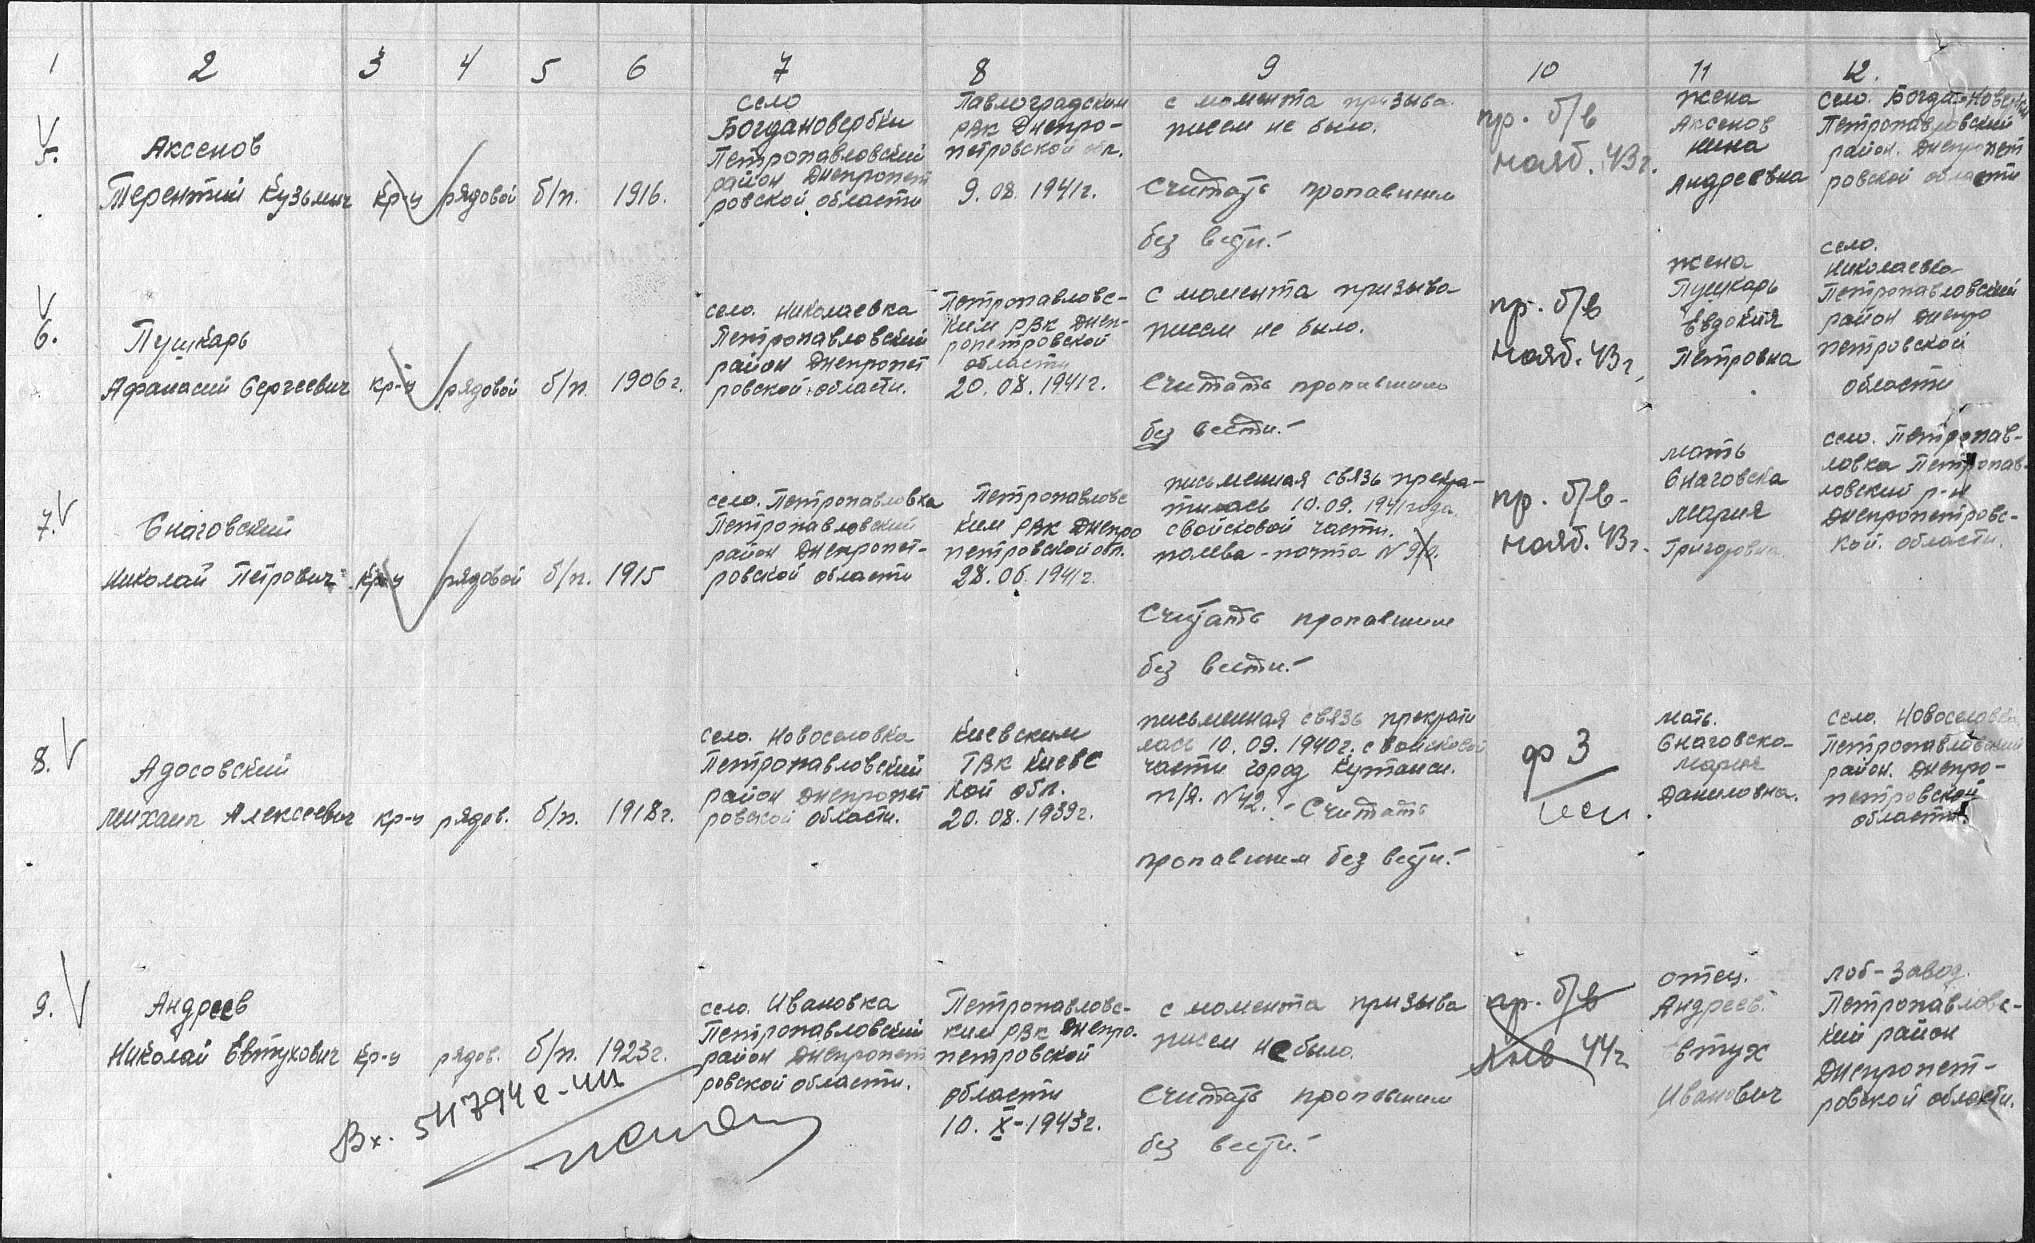 1 2 3 4 5 6 7 8 9 10 11 12.
5.
Аксенов
Терентий Кузьмич
кр-ц
рядовой
б/п.
1916.
село
Богдановербки
Петропавловский
район Днепропет
ровской области
Павлоградским
РВК Днепро-
петровской обл.
9.08.1941г.
с момента призыва
писем не было.
Считать пропавшим
без вести.-
пр. б/в
нояб. 43г.
жена
Аксенов
нина
Андреевна
село.
Петропавловский
район. Днепропет
ровской области
6.
Пушкарь
Афанасий Сергеевич
кр-ц
рядовой
б/п.
1906г.
село. Николаевка
Петропавловский
район Днепропет
ровской области.
Петропавловс-
ким РВК Днеп-
ропетровской
области
20.08.1941г.
с момента призыва
писем не было.
Считать пропавшим
без вести.-
пр. б/в
нояб. 43г.
жена
Пушкарь
Евдокия
Петровна
село.
Николаевка
Петропавловский
район Днепро
петровской
области
7.
Снаговский
Николай Петрович
кр-ц
рядовой
б/п.
1915
село. Петропавловка
Петропавловский
район Днепропет-
ровской области
Петропавловс
ким РВК Днепро
петровской обл.
28.06.1941г.
письменная связь прекра-
тилась 10.09.1941года.
свойсковой части.
полева-почта N
Считать пропавшим
без вести.-
пр. б/в-
нояб. 43г.
мать
Снаговска
Мария
Григоровна
село. Петропав-
ловка Петропав-
ловский р-н
Днепропетровс-
кой. области.
8.
Адосовский
Михаил Алексеевич
кр-ц
рядов.
б/п.
1918г.
село. Новоселовка
Петропавловский
район Днепропет
ровской области.
Киевским
ГВК Киевс
кой обл.
20.08.1939г.
письменная связь прекрати
лась 10.09.1940г. с войсковой
части город Кутаиси.
п/я. N42.- Считать
пропавшим без вести.-
ф 3
мать.
Снаговска-
Мария
Даниловна.
село. Новоселовка
Петропавловский
район. Днепро-
петровской
области.
9.
Андреев
Николай Евтухович
кр-ц
рядов.
б/п.
1923г.
село. Ивановка
Петропавловский
район Днепропет
ровской области.
Петропавловс-
ким РВК Днепро-
петровской
области
10.X-1943г.
с момента призыва
писем не было.
Считать пропавшим
без вести.-
пр. б/в
янв 44г
отец.
Андреев.
Евтух
Иванович
Петропавловс-
кий район
Днепропет-
ровской области.
Вх. 54794с-